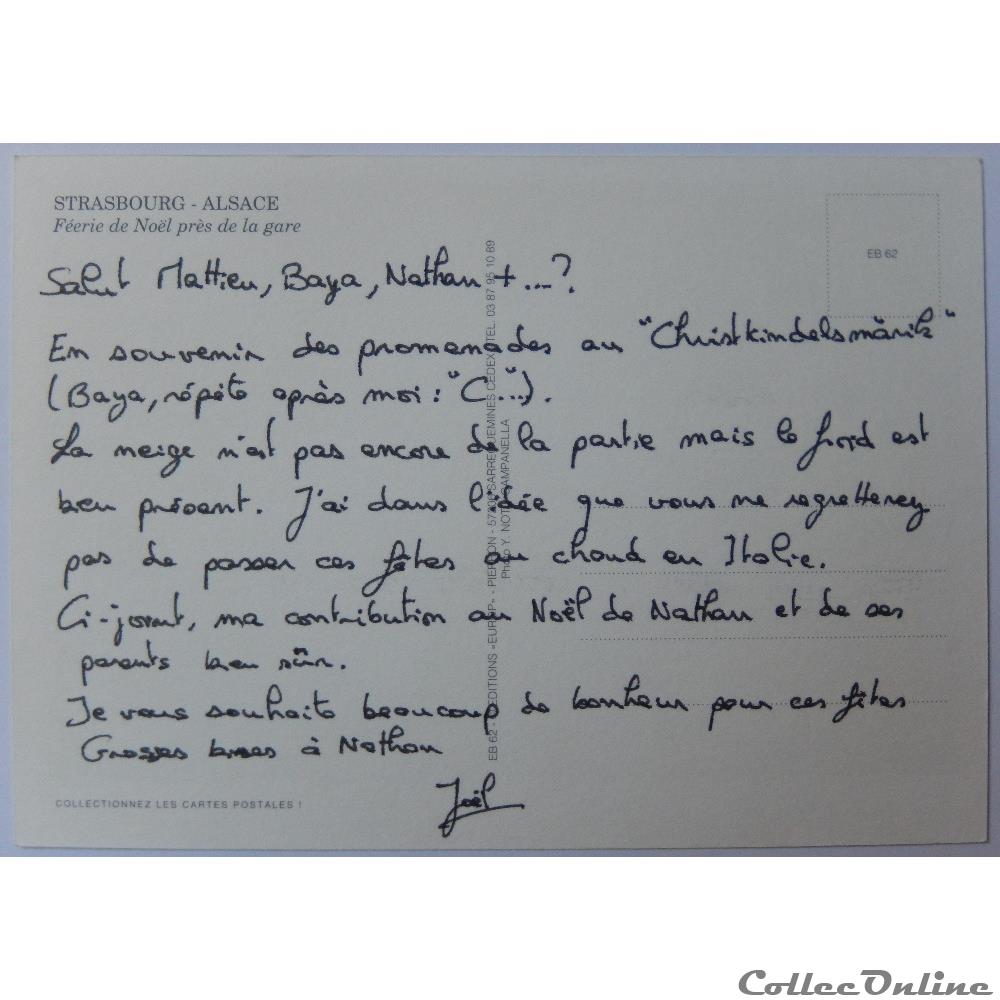 STRASBOURG - ALSACE
Féerie de Noël près de la gare
EB 62
Salut Mattieu, Baya, Nathan + ...?
En souvenir des promenades au "Christkindelsmärik"
(Baya, répète après moi : "C...").
La neige n'est pas encore de la partie mais le froid est
bien présent. J'ai dans l'idée que vous ne regretterez
pas de passer ces fêtes au chaud en Italie.
Ci-joint, ma contribution au Noël de Nathan et de ses
parents bien sûr.
Je vous souhaite beaucoup de bonheur pour ces fêtes
Grosses bises à Nathan
Joël
COLLECTIONNEZ LES CARTES POSTALES !
EB 62 - EDITIONS «EUROP» - PIERRON - 57200 SARREGUEMINES CEDEX - TEL. 03 87 95 10 89
Photo Y. NOTO CAMPANELLA
CollecOnline